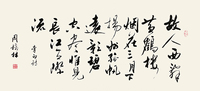 故人西辭
黄鶴樓
烟花三月下
揚州孤帆
遠影碧
空盡惟見
長江天際
流
李白詩